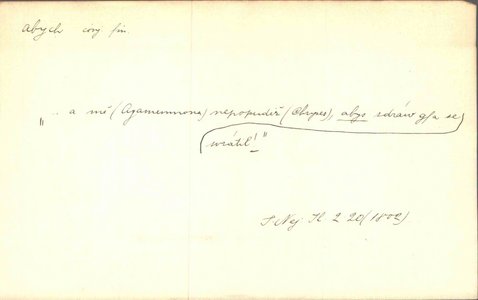 abych conj fin.
„.. a mě (Agamemnona) nepopudiž (Chryses), abys zdráv gsa se
wrátil!"
JNej Il 2 20 (1802)